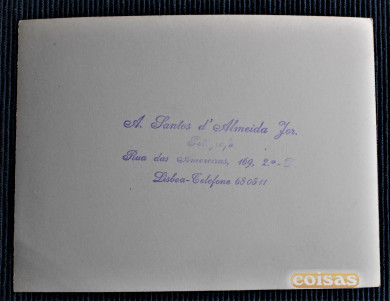 A. Santos d'Almeida Jor.
Rua das 169, 2.º-D
Lisboa-Telefone 680511
coisas